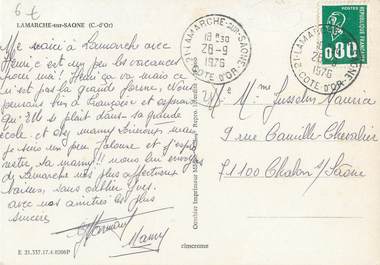 6 f
LAMARCHE-sur-SAONE (C.-d'Or)
Me voici à Lamarche avec
Henri c'est un peu les vacances
pour moi! Henri ça va mais ce
n'est pas la grande forme, Nous
pensons bien à Françoise et espérons
qu'Elle se plait dans sa grande
école et chez mamy
je suis un peu jalouse et j'espère
mettre sa mamy!! nous lui envoyons
de Lamarche nos plus affectueux
baisers, sans oublier Yves.
avec nos amitiés les plus
sincères
Mamy
E 21.337.17.4.0206P
Combier Imprimeur Mâcon
21 LAMARCHE-SUR-SAONE
18 H 30
26-9
1976
COTE D'OR
21 LAMARCHE-SUR-SAONE
26-9
1976
COTE D'OR
0,80
M. Mme Jusselin Maurice
9 rue Camille-Chevalier
71100 Chalon s/ Saône
rimcenne